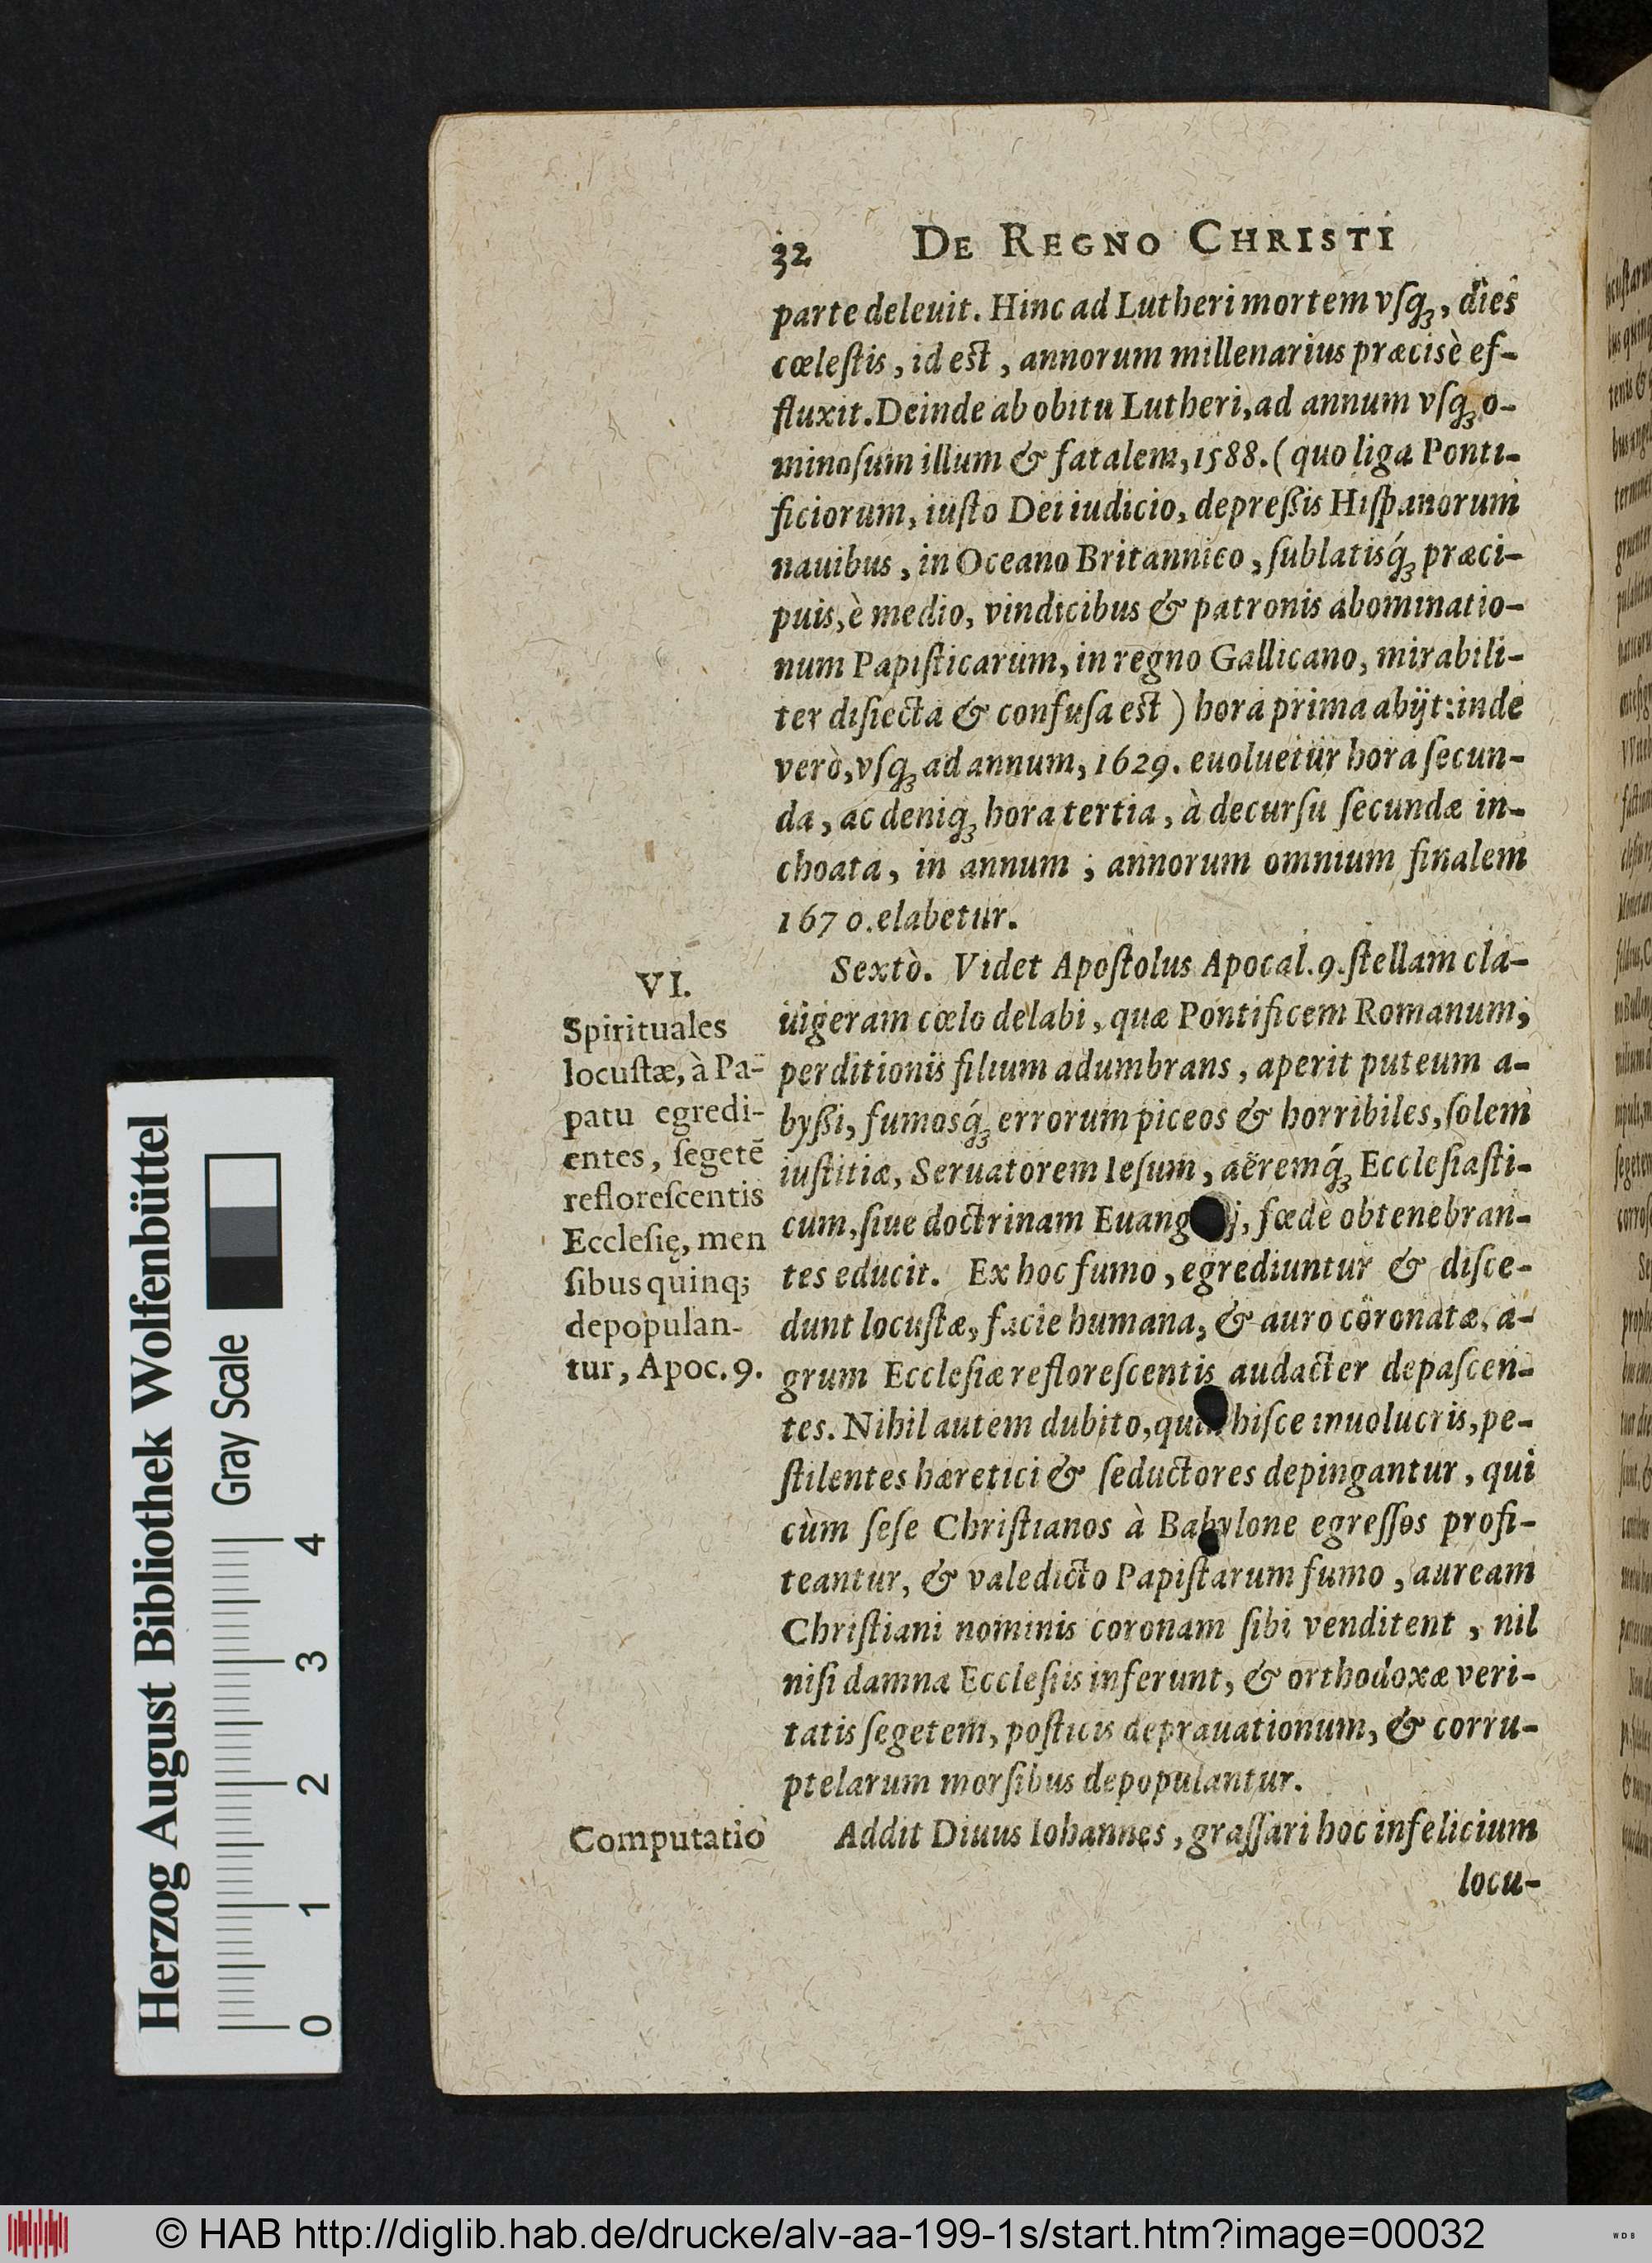 32 DE REGNO CHRISTI
parte deleuit. Hinc ad Lutheri mortem vſq́ꝫ, dies
cœleſtis, id eſt, annorum millenarius præcisè ef-
fluxit. Deinde ab obitu Lutheri, ad annum vſqꝫ o-
minoſum illum & fatalem, 1588. (quo liga Ponti-
ficiorum, iuſto Dei iudicio, depreßis Hiſpanorum
nauibus, in Oceano Britannico, ſublatisq́ꝫ præci-
puis, è medio, vindicibus & patronis abominatio-
num Papiſticarum, in regno Gallicano, mirabili-
ter diſiecta & confuſa eſt) hora prima abijt: inde
verò, vſqꝫ ad annum, 1629. euoluetur hora ſecun-
da, ac deniqꝫ hora tertia, à decurſu ſecundæ in-
choata, in annum; annorum omnium finalem
1670. elabetur.
Sextò. Videt Apoſtolus Apocal. 9. ſtellam cla-
uigeram cœlo delabi, quæ Pontificem Romanum,
perditionis filium adumbrans, aperit puteum a-
byßi, fumosq́ꝫ errorum piceos & horribiles, ſolem
iuſtitiæ, Seruatorem Ieſum, aëremq́ꝫ Eccleſiaſti-
cum, ſiue doctrinam Euang j, fœdè obtenebran-
tes educit. Ex hoc fumo, egrediuntur & diſce-
dunt locuſtæ, facie humana, & auro coronatæ, a-
grum Eccleſiæ refloreſcentis audacter depaſcen-
tes. Nihil autem dubito, quin hiſce inuolucris, pe-
ſtilentes hæretici & ſeductores depingantur, qui
cùm ſeſe Chriſtianos à Babylone egreſſos profi-
teantur, & valedicto Papiſtarum fumo, auream
Chriſtiani nominis coronam ſibi venditent, nil
niſi damna Eccleſiis inferunt, & orthodoxæ veri-
tatis ſegetem, poſticis deprauationum, & corru-
ptelarum morſibus depopulantur.
Addit Diuus Iohannes, graſſari hoc infelicium
locu-
VI.
Spirituales
locuſtæ, à Pa-
patu egredi-
entes, ſegetē
refloreſcentis
Eccleſię, men
ſibus quinq;
depopulan-
tur, Apoc. 9.
Computatio
Herzog August Bibliothek Wolfenbüttel
Gray Scale
0 1 2 3 4
© HAB http://diglib.hab.de/drucke/alv-aa-199-1s/start.htm?image=00032
WDB